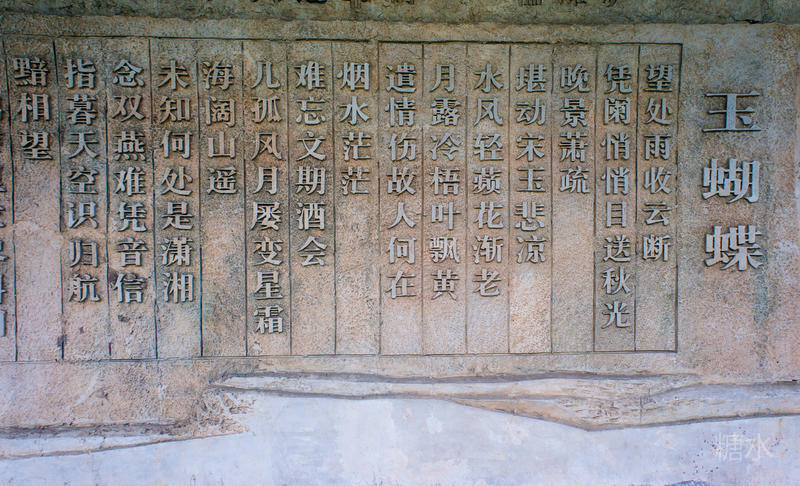 玉蝴蝶
望处雨收云断
凭阑悄悄目送秋光
晚景萧疏
堪动宋玉悲凉
水风轻蘋花渐老
月露冷梧叶飘黄
遣情伤故人何在
烟水茫茫
难忘文期酒会
几孤风月屡变星霜
海阔山遥
未知何处是潇湘
念双燕难凭音信
指暮天空识归航
黯相望
糖水